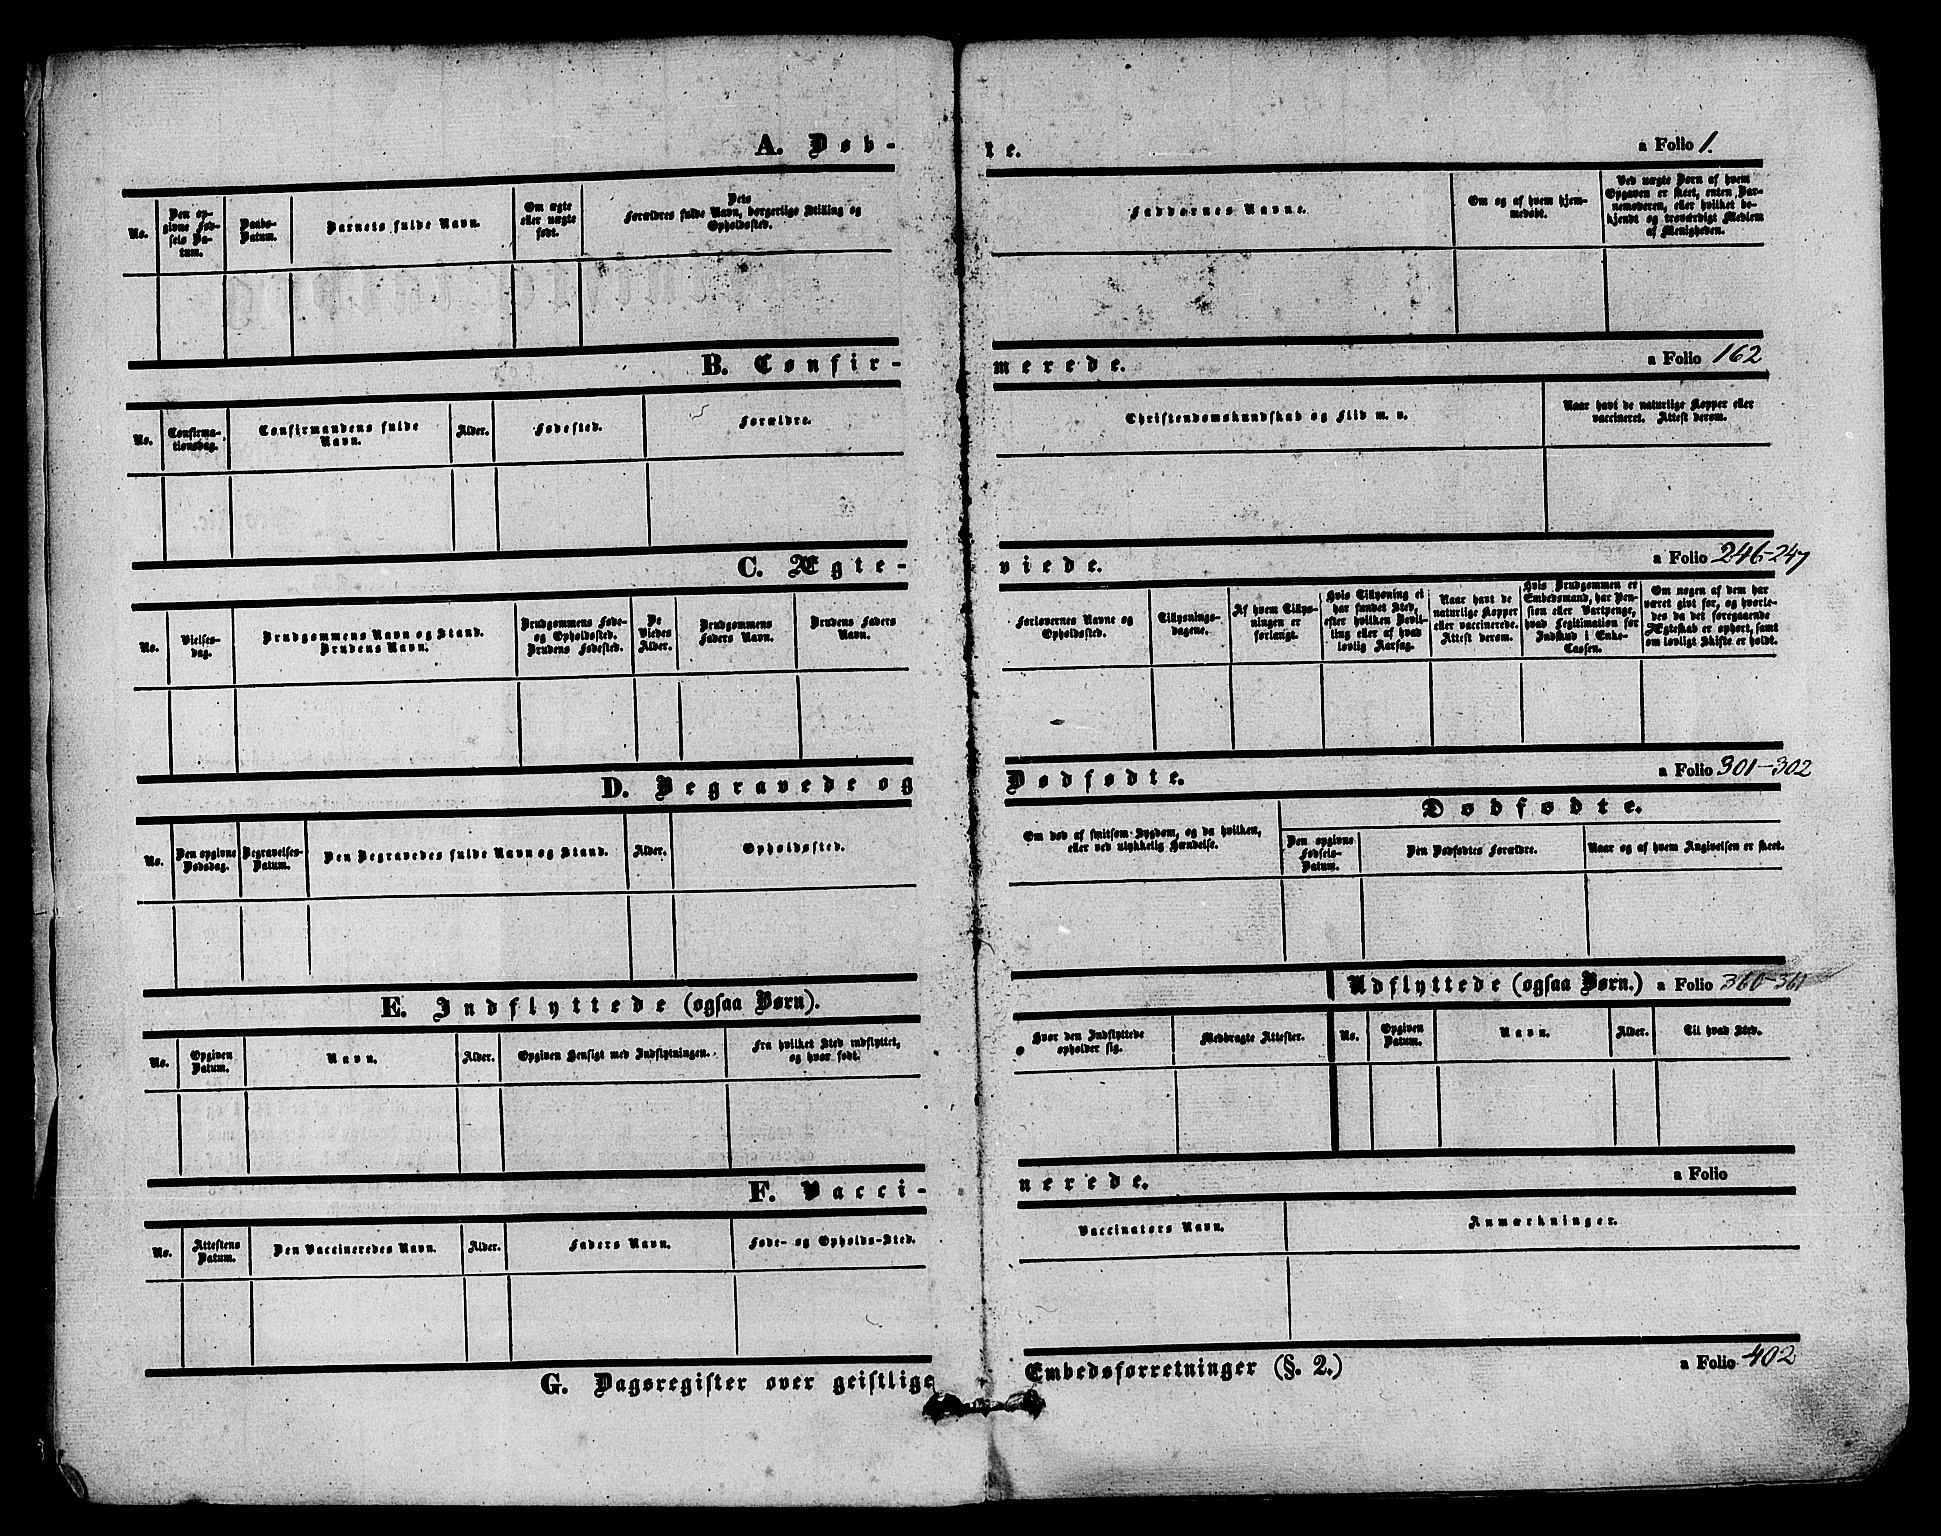 A. Døbte. a Folio 1.
No.
Den op-
givne Fød-
sels Da-
tum.
Daabs-
Datum.
Barnets fulde Navn.
Om ægte
eller uægte
født.
Dets
Forældres fulde Navn, borgerlige Stilling og
Opholdssted.
Faddernes Navne.
Om og af hvem hjem-
medøbt.
Ved uægte Børn af hvem
Opgaven er skeet, enten Bar-
nemoderen, eller hvilket be-
kjendt og troværdigt Medlem
af Menigheden.
B. Confirmerede. a Folio 162
No.
Confirma-
tionsdag.
Confirmandens fulde
Navn.
Alder.
Fødested.
Forældre.
Christendomskundskab og Flid m. v.
Naar havt de naturlige Kopper eller
vaccineret. Attest derom.
C. Ægteviede. a Folio 246-247
No.
Vielses-
dag.
Brudgommens Navn og Stand.
Brudens Navn.
Brudgommens Føde-
og Opholdssted.
Brudens Fødested.
De
Viedes
Alder.
Brudgommens
Faders Navn.
Brudens Faders
Navn.
Forlovernes Navne og
Opholdssted.
Tillysnings-
dagene.
Af hvem Tillys-
ningen er
forlangt.
Hvis Tillysning ei
har fundet Sted,
efter hvilken Bevil-
ling eller af hvad
lovlig Aarsag.
Naar havt de
naturlige Kopper
eller vaccinerede.
Attest derom.
Hvis Brudgommen er
Embedsmand, har Pen-
sion eller Vartpenge,
hvad Legitimation for
Indskud i Enke-
Cassen.
Om nogen af dem har
været gift før, og hvorle-
des da det foregaaende
Ægteskab er ophørt, samt
om lovligt Skifte er holdt.
D. Begravede og Dødfødte. a Folio 301-302
No.
Den opgivne
Dødsdag.
Begravelses-
Datum.
Den Begravedes fulde Navn og Stand.
Alder.
Opholdssted.
Om død af smitsom Sygdom, og da hvilken,
eller ved ulykkelig Hændelse.
Dødfødte.
Den opgivne
Fødsels-
Datum.
Den Dødfødtes Forældre.
Naar og af hvem Angivelsen er skeet.
E. Indflyttede (ogsaa Børn).
Udflyttede (ogsaa Børn.) a Folio 360-361
No.
Opgiven
Datum.
Navn.
Alder.
Opgiven Hensigt med Indflytningen.
Fra hvilket Sted indflyttet,
og hvor født.
Hvor den Indflyttede
opholder sig.
Medbragte Attester.
No.
Opgiven
Datum.
Navn.
Alder.
Til hvad Sted.
F. Vaccinerede. a Folio
No.
Attestens
Datum.
Den Vaccineredes Navn.
Alder.
Faders Navn.
Føde- og Opholds-Sted.
Vaccinators Navn.
Anmærkninger.
G. Dagsregister over geistlige Embedsforretninger (§. 2.) a Folio 402